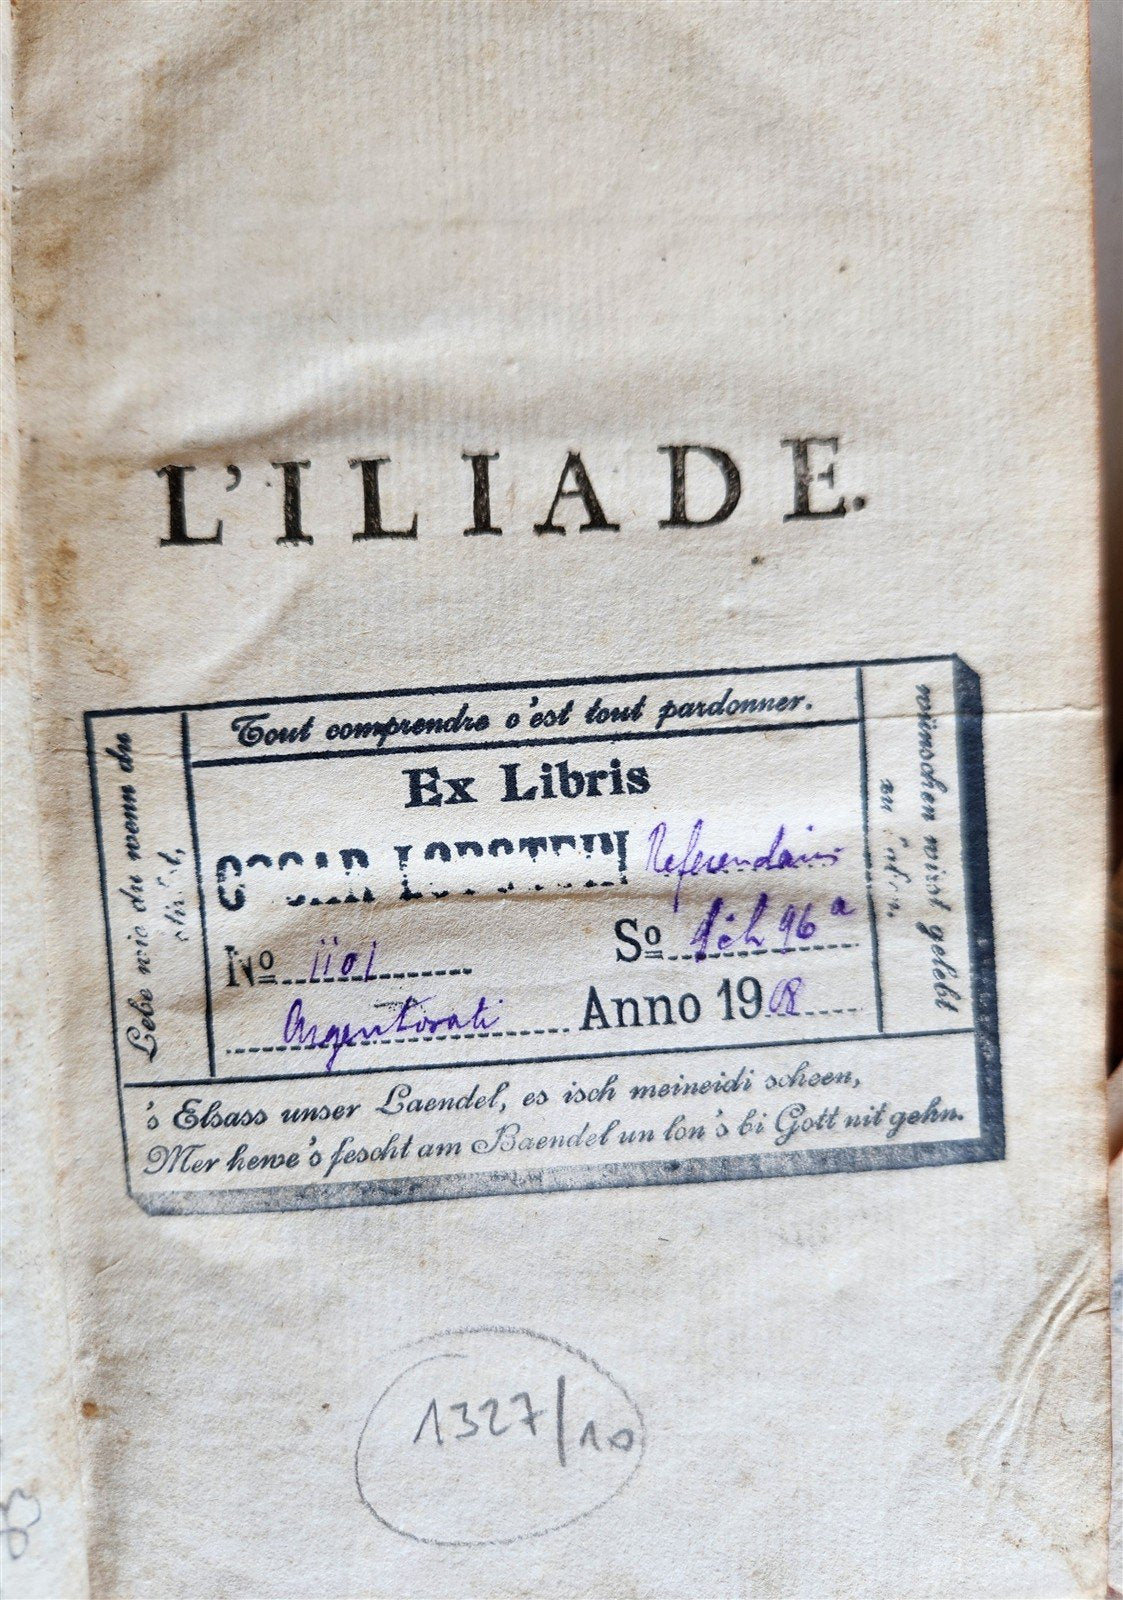 L'ILIADE.
Tout comprendre c'est tout pardonner.
Ex Libris
OSCAR LOBSTEIN Referendar
No 1101
So 96a
Argentorati Anno 1908
Lebe wie du wenn du
stirbst,
wünschen wirst gelebt
zu
's Elsass unser Laendel, es isch meineidi scheen,
Mer hewe's fescht am Baendel un lon's bi Gott nit gehn.
1327/10